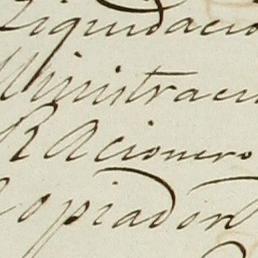 Liquidació
Ministració
Racionero
Copiador